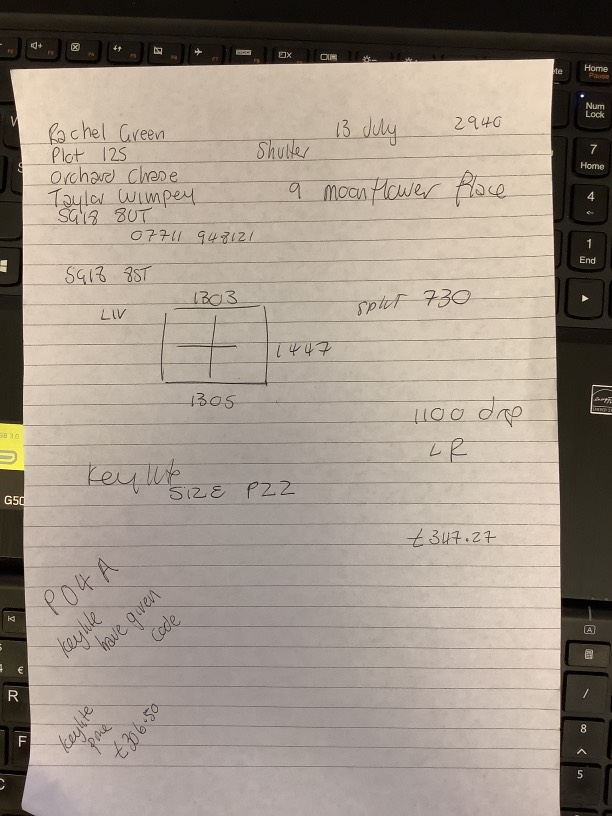 Rachel Green 13 July 2940
Plot 125 Shutter
Orchard Chase
Taylor Wimpey 9 moonflower place
SG18 8UT
07711 948121
SG18 8ST
LIV 1303 split 730
1447
1305
1100 drop
LR
Keylite
SIZE P22
£347.27
P04A
Keylite
have given
code
Keylite
pine
£306.50
Home
Pause
Num
Lock
7
Home
4
1
End
G50
R
F
8
5